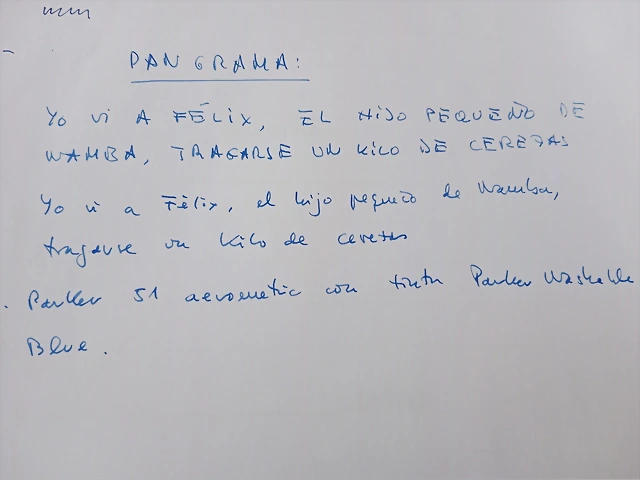 PANGRAMA:
Yo vi A FÉLIX, EL HIJO PEQUEÑO DE
WAMBA, TRAGARSE UN KILO DE CEREZAS
Yo vi a Félix, el hijo pequeño de Wamba,
tragarse un kilo de cerezas
. Parker 51 aerometric con tinta Parker Washable
Blue.